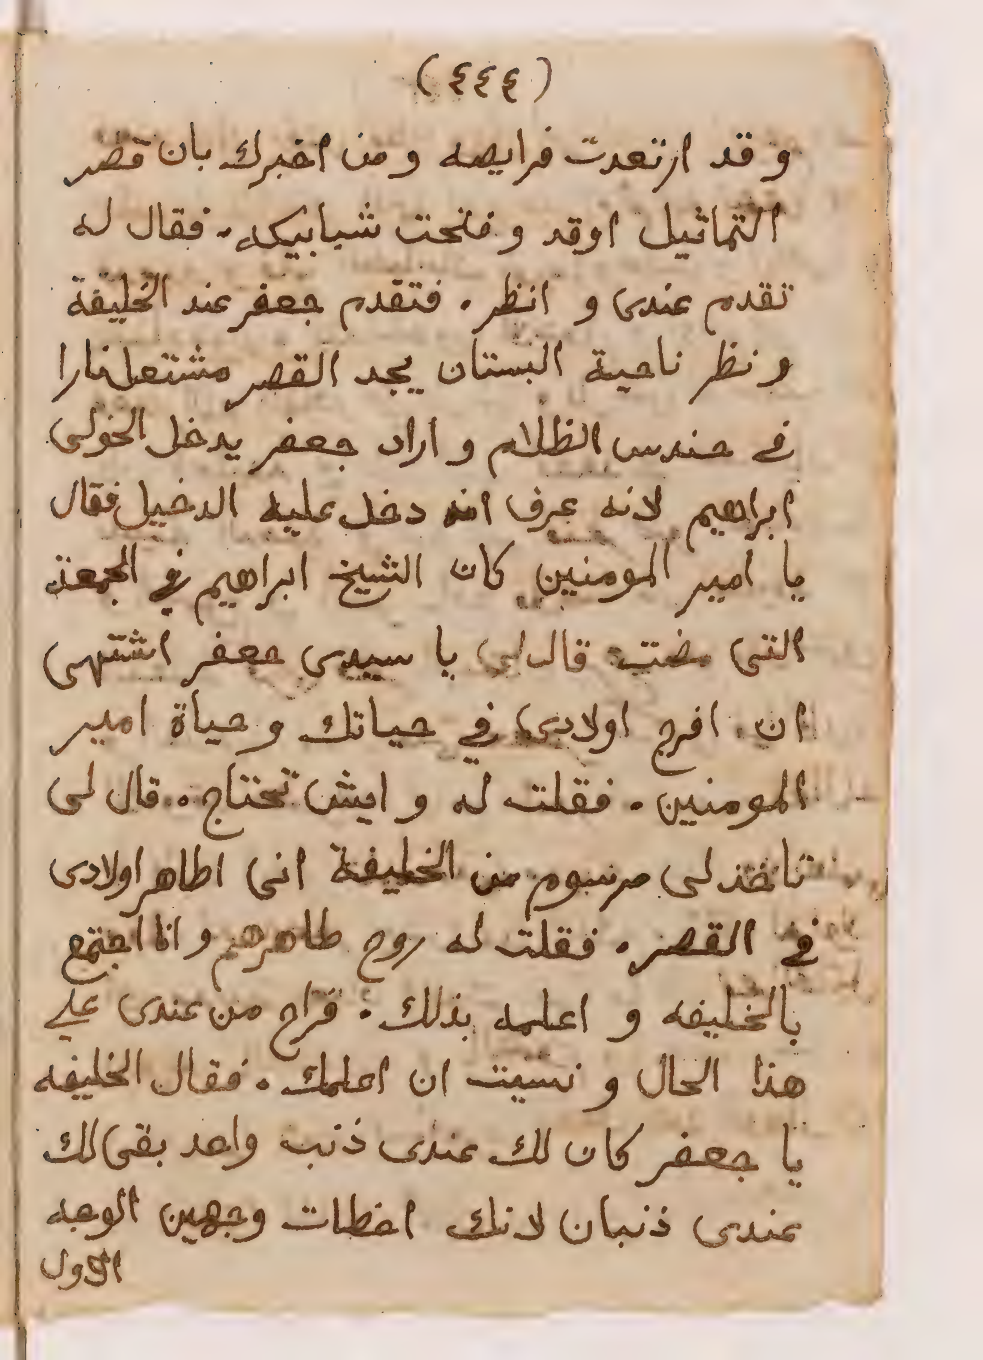 (٤٤٤)
وقد ارتعدت فرايصه ومن اخبرك بان قصر
التماثيل اوقد وفتحت شبابيكه. فقال له
تقدم عندى و انظر. فتقدم جعفر عند الخليفة
ونظر ناحية البستان يجد القصر مشتعل نارا
في حندس الظلام و اراد جعفر يدخل الخولى
ابراهيم لانه عرف انه دخل عليه الدخيل فقال
يا امير المومنين كان الشيخ ابراهيم في الجمعة
التى مضت قال لى يا سيدى جعفر اشتهى
ان افرج اولادى في حياتك وحياة امير
المومنين. فقلت له و ايش تحتاج. قال لى
تاخذ لى مرسوم من الخليفة انى اطاهر اولادى
في القصر. فقلت له روح طاهرهم و انا اجتمع
بالخليفه و اعلمه بذلك. فراح من عندى على
هذا الحال و نسيت ان اعلمك. فقال الخليفه
يا جعفر كان لك عندى ذنب واحد بقى لك
عندى ذنبان لانك اخطات وجهين الوجه
الاول